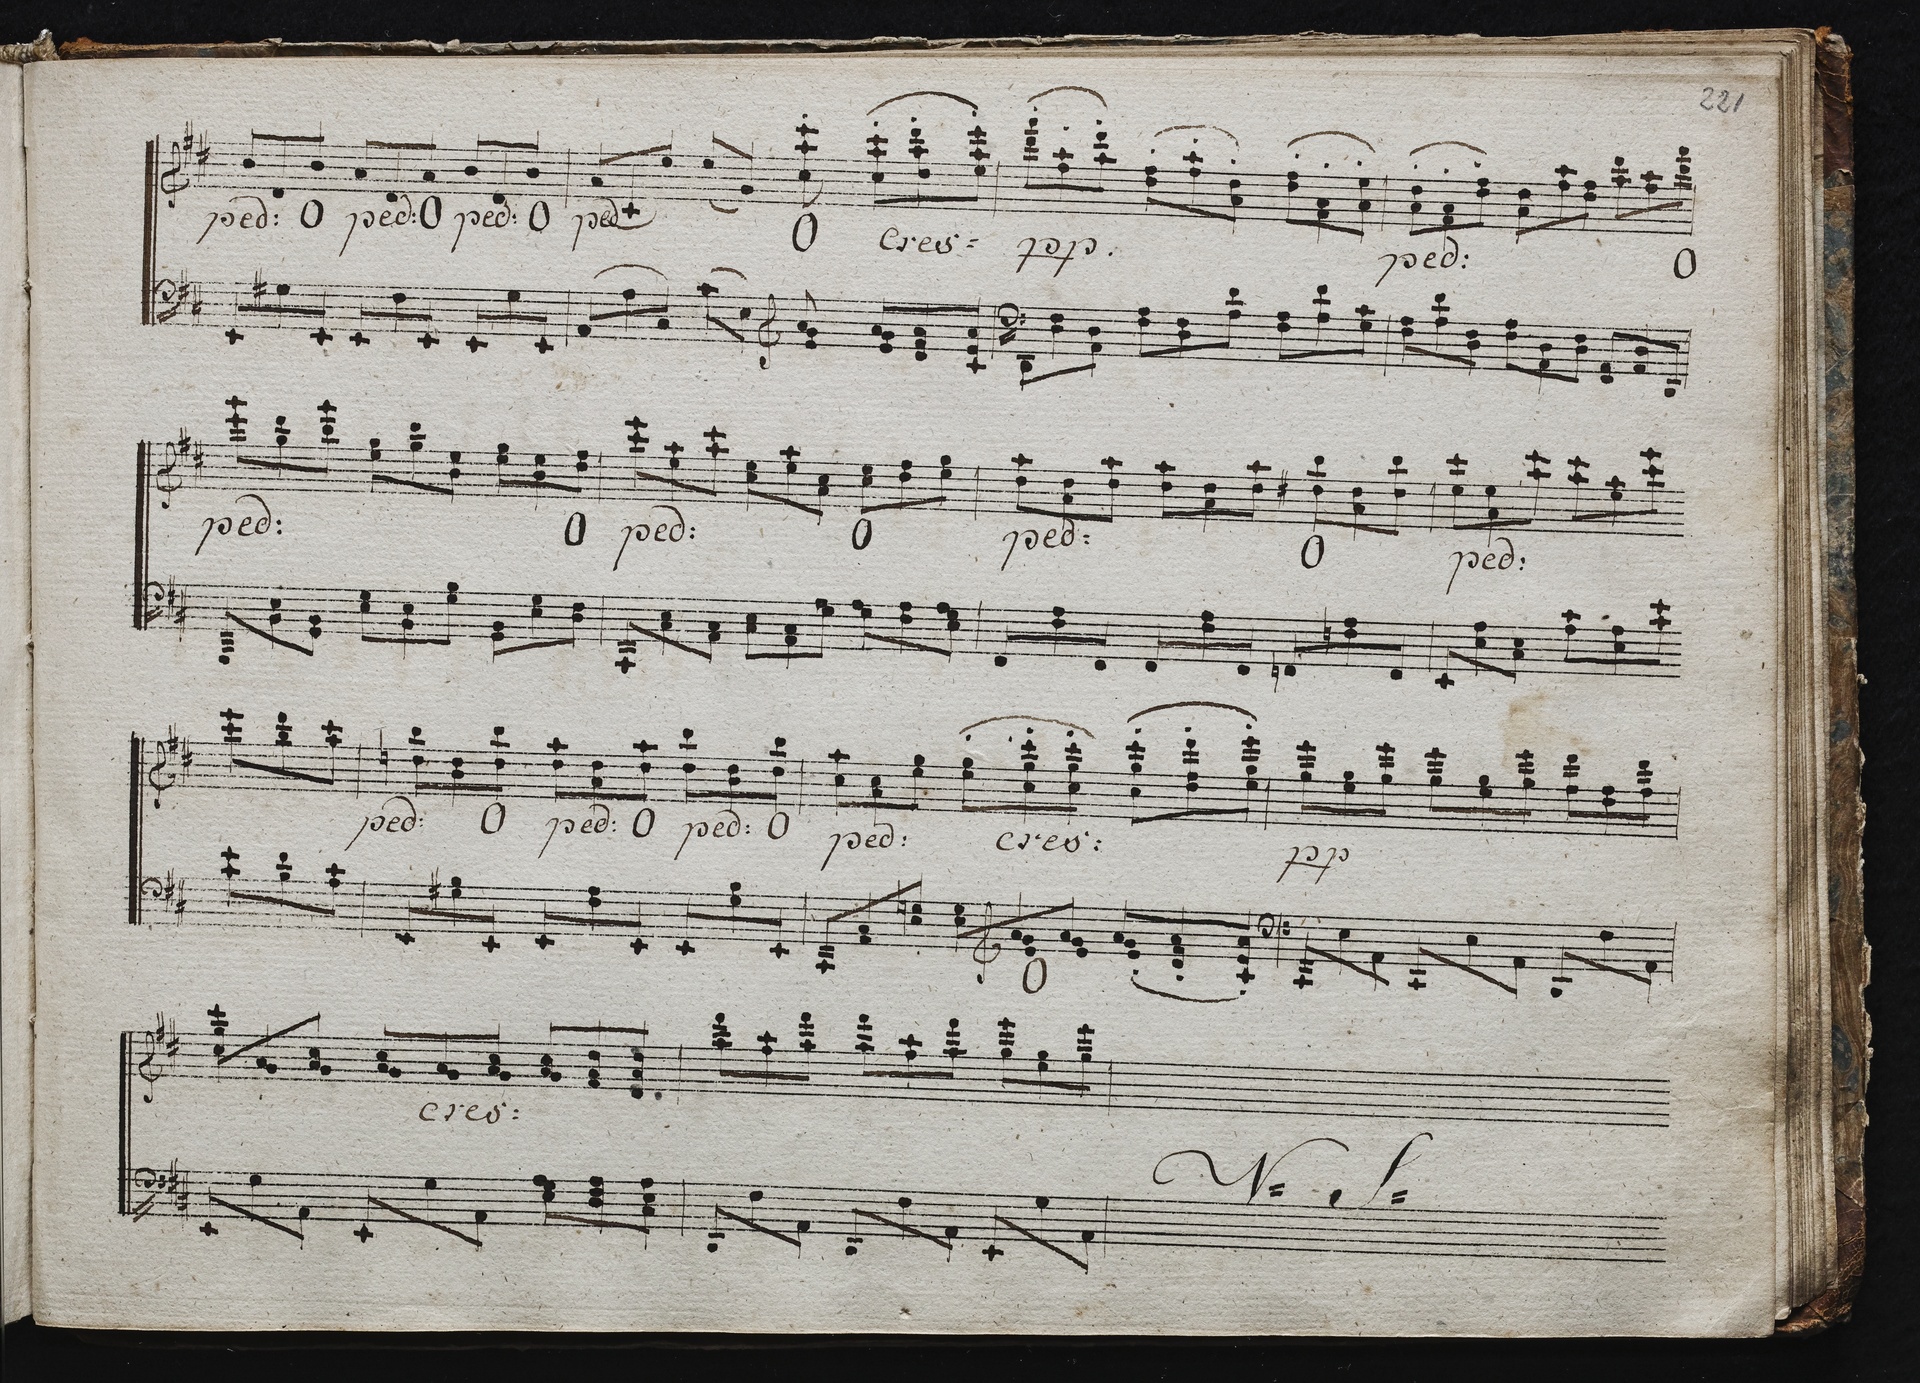 221
ped: O ped: O ped: O ped O cres= ppp. ped: O
ped: O ped: O ped: O ped:
ped: O ped: O ped: O ped: cres: pp
O
cres: